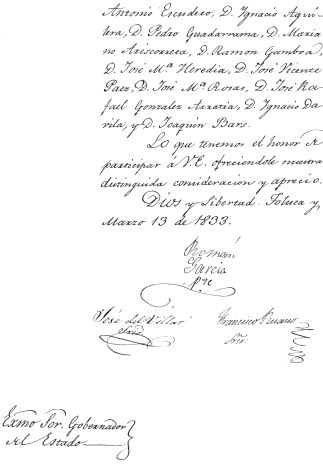 Antonio Escudero, D. Ignacio Aqui-
lera, D. Pedro Guadarrama, D. Maria
no Ariscorreta, D. Ramon Gamboa,
D. José Mª Heredia, D. José Vicente
Paez, D. José Mª Rosas, D. José Ra
fael Gonzalez Arratia, D. Ignacio Da
vila, y D. Joaquin Bars.
Lo que tenemos el honor de
participar á V.E. ofreciendole nuestra
distinguida consideracion y aprecio.
Dios y Libertad. Toluca y
Marzo 13 de 1833.
Román
Garcia
Pte
José del Villar
Srio
Francisco
Srio.
Exmo Sor. Gobernador
del Estado